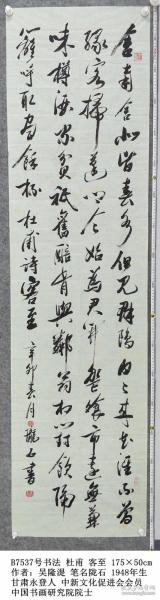 舍南舍北皆春水但见群鸥日日来花径不曾
缘客扫蓬门今始为君开盘飧市远无兼
味樽酒家贫只旧醅肯与邻翁相对饮隔
篱呼取尽余杯杜甫诗客至
辛卯春月陇石书
B7537号书法 杜甫 客至 175×50cm
作者：吴隆湜 笔名陇石 1948年生
甘肃永登人 中新文化促进会会员
中国书画研究院院士